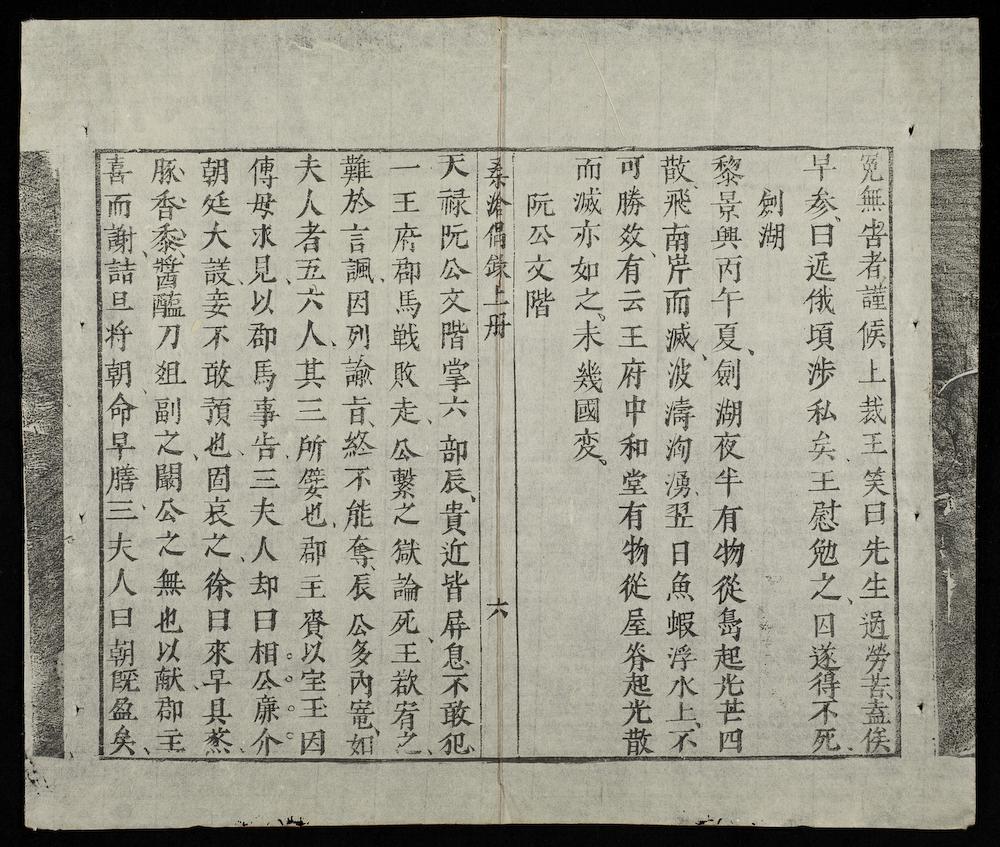 冤無告者謹候上裁王笑曰先生過勞苦盍俟
早参曰迟俄頃涉私矣王慰勉之囚遂得不死
劍湖
黎景興丙午夏劍湖夜半有物從島起光芒四
散飛南岸而滅波濤洶湧翌日魚蝦浮水上不
可勝效有云王府中和堂有物從屋脊起光散
而滅亦如之未幾國変
阮公文階
桑滄偶錄上册 六
天禄阮公文階掌六部辰貴近皆屏息不敢犯
一王府郡馬戦敗走公繫之獄論死王欲宥之
難於言諷因列諭旨終不能奪辰公多內寵如
夫人者五六人其三所嬖也郡主賫以宝王因
傳母求見以郡馬事告三夫人却曰相公廉介
朝廷大議妾不敢預也固哀之徐曰來早具蒸
豚香黍醬醢刀俎副之闞公之無也以献郡主
喜而謝詰旦将朝命早膳三夫人曰朝既盈矣